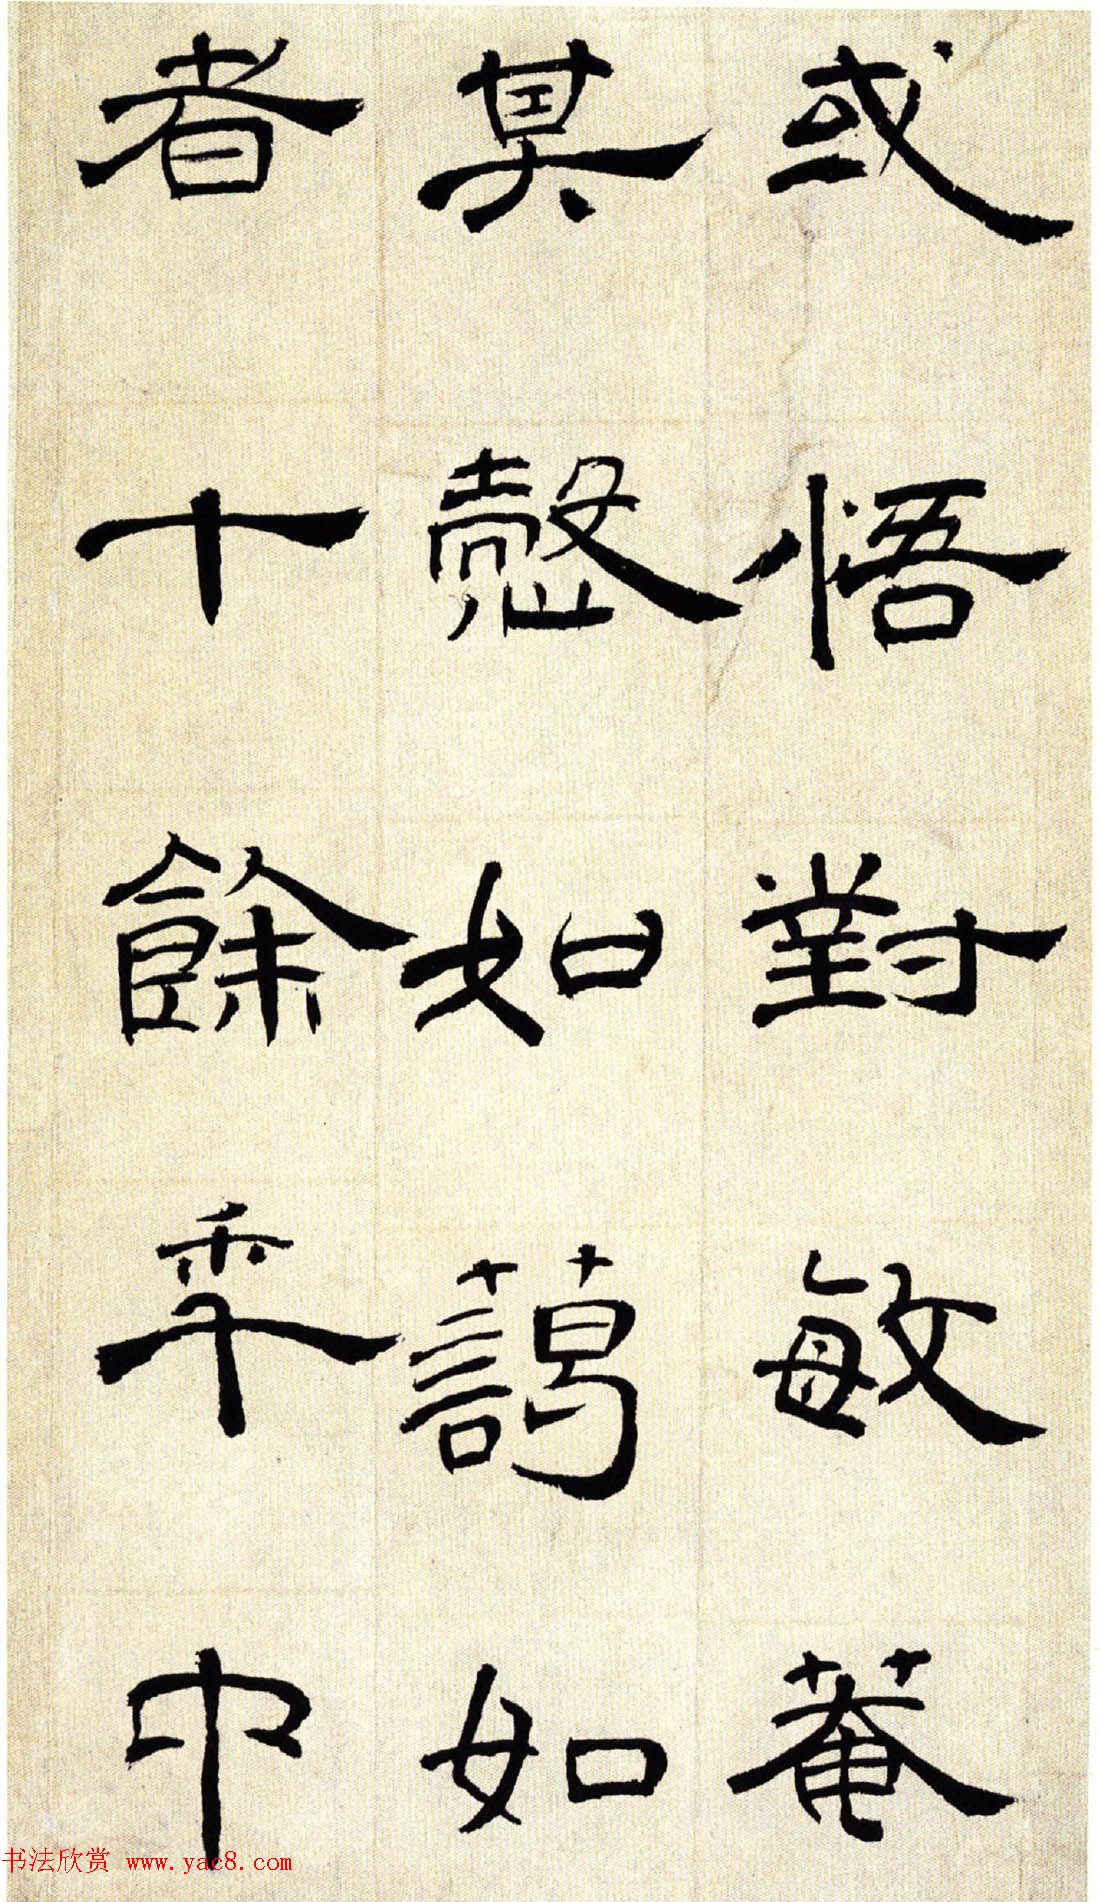 或悟對敏菴
其慤如藹如
者十餘秊巾
书法欣赏 www.yac8.com